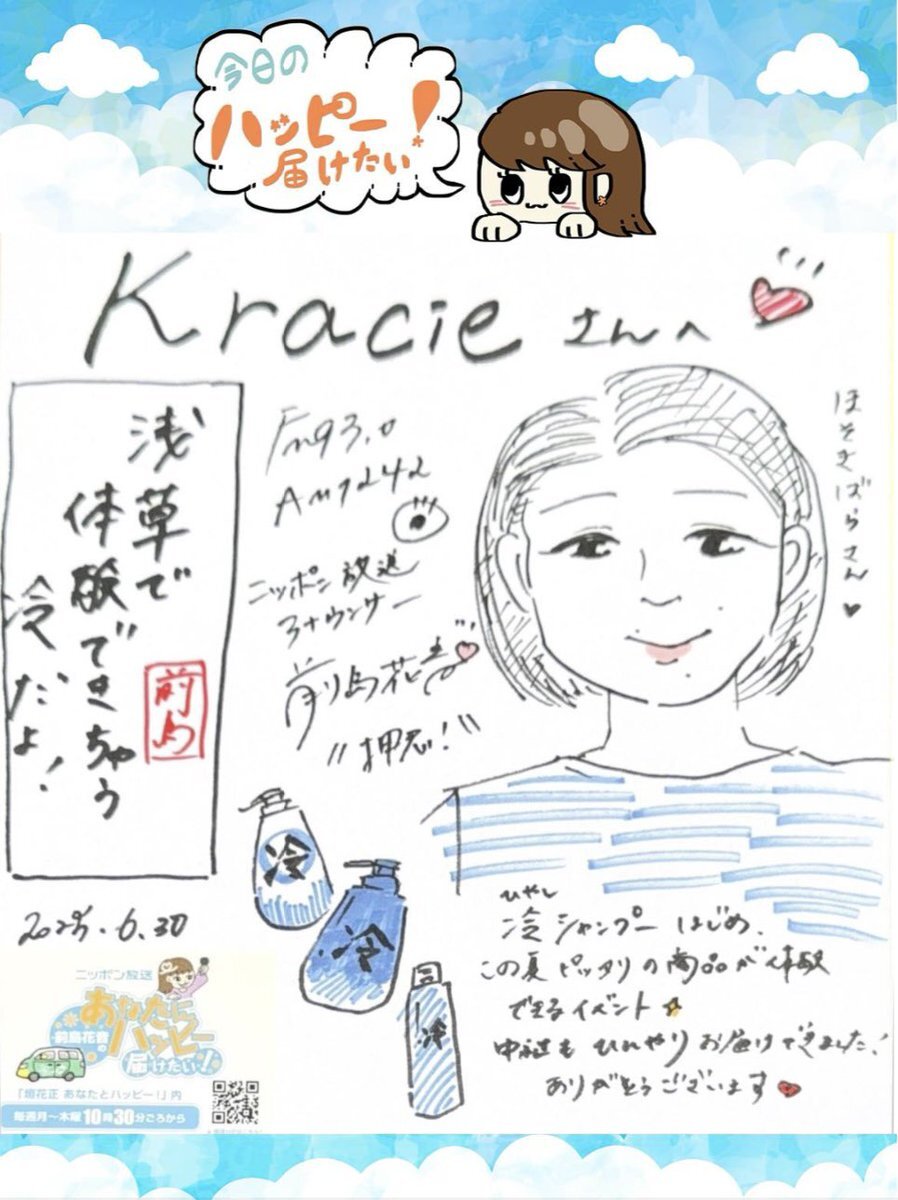 今日の
ハッピー!
届けたい!
Kracieさんへ
浅草で
体験できちゃう
冷だよ!
前島
Fm93.0
Am1242
ニッポン放送
アナウンサー
前島花音
"押忍!"
ほそきばらさん
冷
冷
冷
ひやし
冷シャンプーはじめ、
この夏ピッタリの商品が体験
できるイベント
中継もひんやりお届けできました!
ありがとうございます
2025.6.30
ニッポン放送
前島花音の
あなたに
ハッピー
届けたい!
「垣花正 あなたとハッピー!」内
毎週月〜木曜10時30分ごろから